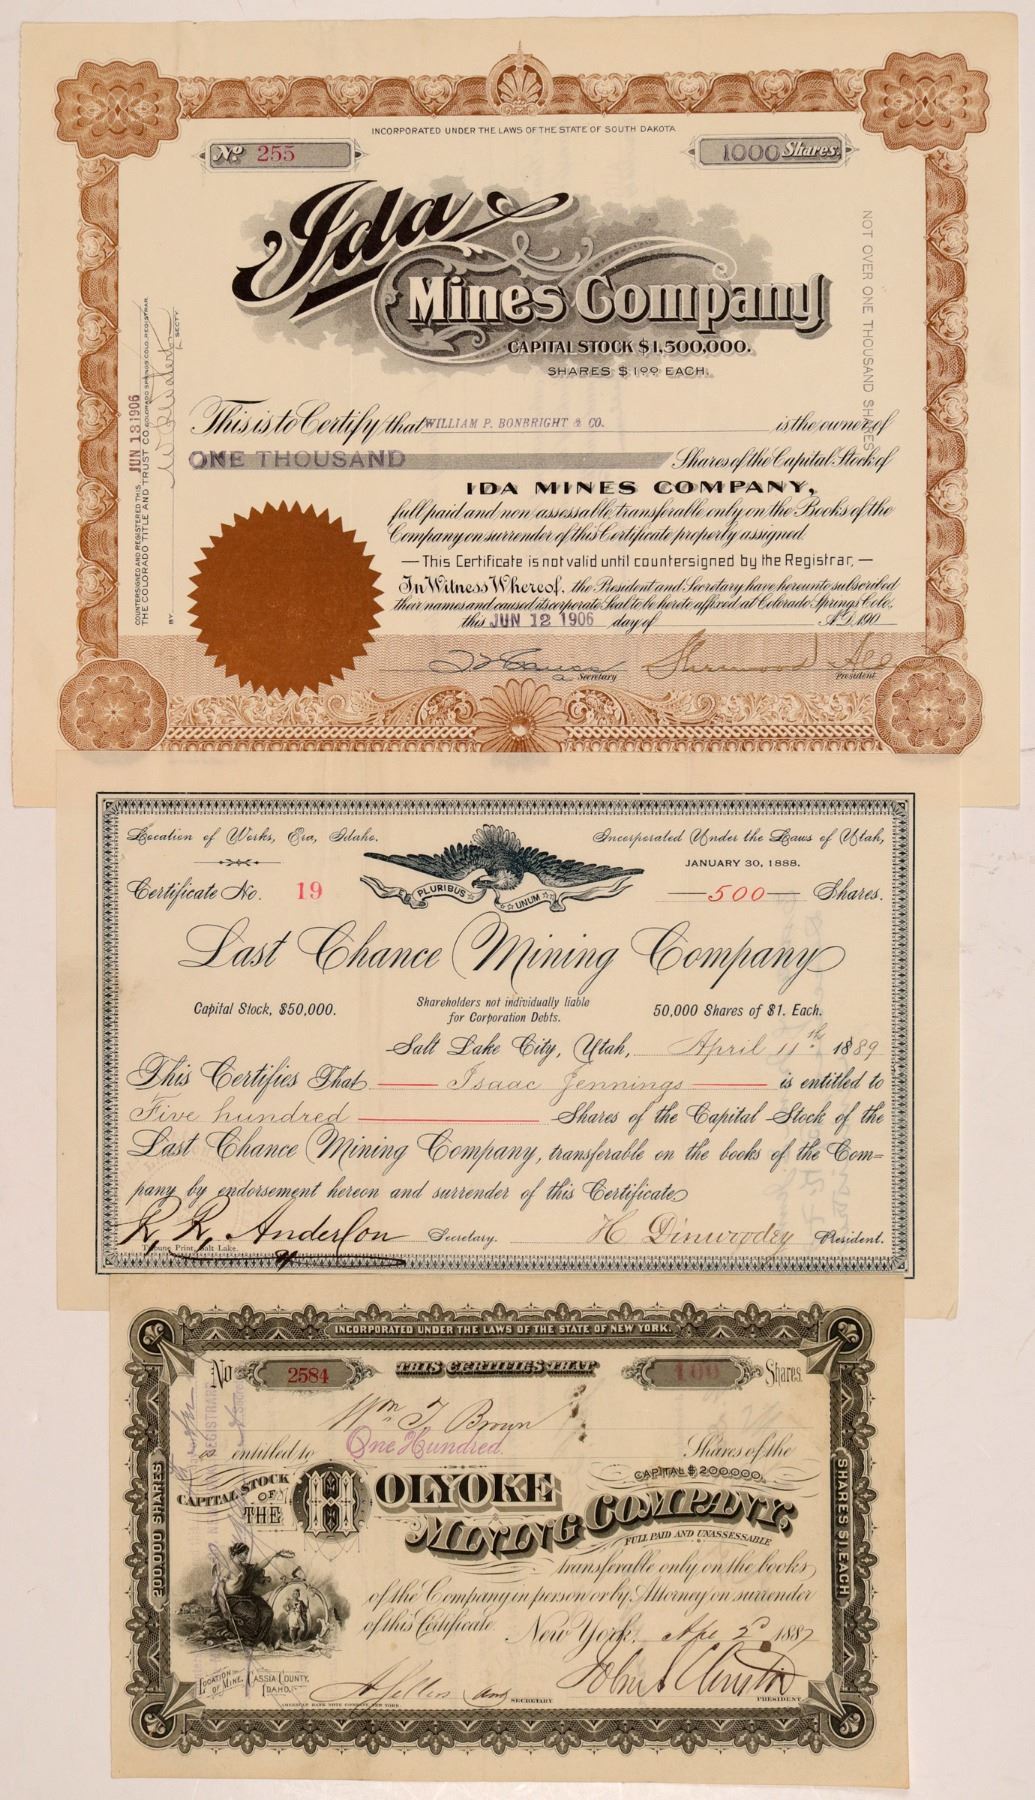 INCORPORATED UNDER THE LAWS OF THE STATE OF SOUTH DAKOTA
No 255
1000 Shares.
Ida
Mines Company
CAPITAL STOCK $1,500,000.
SHARES $1.00 EACH.
NOT OVER ONE THOUSAND SHARES
COUNTERSIGNED AND REGISTERED THIS JUN 13 1906
THE COLORADO TITLE AND TRUST CO. COLORADO SPRINGS COLO. REGISTRAR.
BY
SECTY.
This is to Certify that WILLIAM P. BONBRIGHT & CO. is the owner of
ONE THOUSAND Shares of the Capital Stock of
IDA MINES COMPANY,
full paid and non assessable, transferable only on the Books of the
Company on surrender of this Certificate properly assigned.
— This Certificate is not valid until countersigned by the Registrar, —
In Witness Whereof, the President and Secretary have hereunto subscribed
their names and caused its corporate Seal to be hereto affixed at Colorado Springs Colo.
this JUN 12 1906 day of A.D. 190
Secretary
Sherwood
President
Location of Works, Era, Idaho.
Incorporated Under the Laws of Utah,
JANUARY 30, 1888.
Certificate No. 19
PLURIBUS
UNUM
500 Shares.
Last Chance Mining Company
Capital Stock, $50,000.
Shareholders not individually liable
for Corporation Debts.
50,000 Shares of $1. Each.
Salt Lake City, Utah, April 11th 1889
This Certifies That Isaac Jennings is entitled to
Five hundred Shares of the Capital Stock of the
Last Chance Mining Company, transferable on the books of the Com-
pany by endorsement hereon and surrender of this Certificate
R. R. Anderson Secretary. H Dinwoodey President.
Tribune Print, Salt Lake.
INCORPORATED UNDER THE LAWS OF THE STATE OF NEW YORK.
No 2584
THIS CERTIFIES THAT
100 Shares.
Wm. T. Brown
is entitled to One Hundred Shares of the
CAPITAL STOCK
OF
THE
HOLYOKE
MINING COMPANY,
CAPITAL $200,000.
FULL PAID AND UNASSESSABLE
200,000 SHARES
SHARES $1. EACH
transferable only on the books
of the Company in person or by Attorney on surrender
of this Certificate.
New York, Apl 2d 1887
LOCATION OF MINE, CASSIA COUNTY, IDAHO.
AMERICAN BANK NOTE COMPANY, NEW YORK
SECRETARY
PRESIDENT